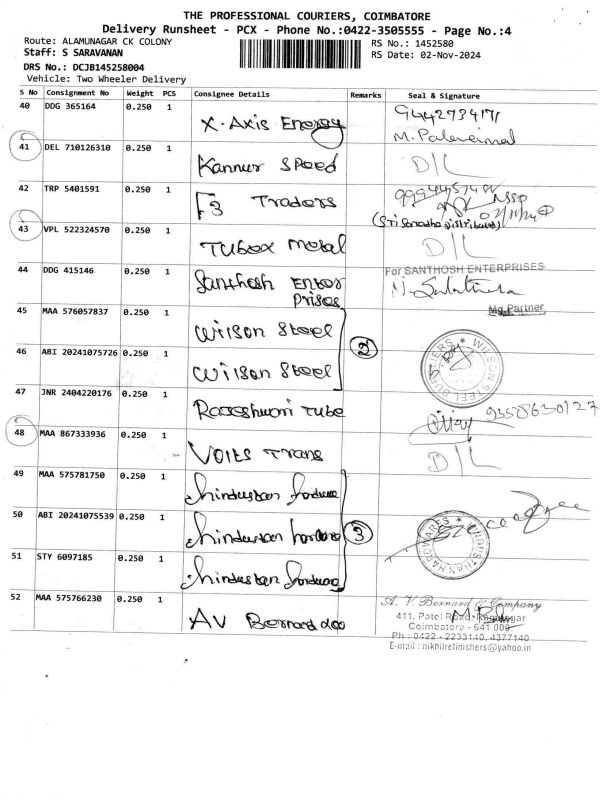 THE PROFESSIONAL COURIERS, COIMBATORE
Delivery Runsheet - PCX - Phone No.:0422-3505555 - Page No.:4
Route: ALAMUNAGAR CK COLONY
RS No.: 1452580
Staff: S SARAVANAN
RS Date: 02-Nov-2024
DRS No.: DCJB145258004
Vehicle: Two Wheeler Delivery
S No Consignment No Weight PCS Consignee Details Remarks Seal & Signature
40 DDG 365164 0.250 1 X-Axis Energy 9442734171
41 DEL 710126310 0.250 1 Kannur Speed D/L
42 TRP 5401591 0.250 1 F3 Traders
43 VPL 522324570 0.250 1 Tubex Metal D/L
44 DDG 415146 0.250 1 Santhosh Enter For SANTHOSH ENTERPRISES
Prises
Mg. Partner
45 MAA 576057837 0.250 1 Wilson Steel
2
46 ABI 20241075726 0.250 1 Wilson Steel
47 JNR 2404220176 0.250 1 Tube 9358630127
48 MAA 867333936 0.250 1 Volts Trans D/L
49 MAA 575781750 0.250 1 hindustan
50 ABI 20241075539 0.250 1 hindustan
3
51 STY 6097185 0.250 1 hindustan
52 MAA 575766230 0.250 1 AV Bernard A. V. Bernard & Company
411, Patel Road, Ramnagar
Coimbatore - 641 009
Ph : 0422 - 2233140, 4377140
E-mail : nikhilrefinishers@yahoo.in